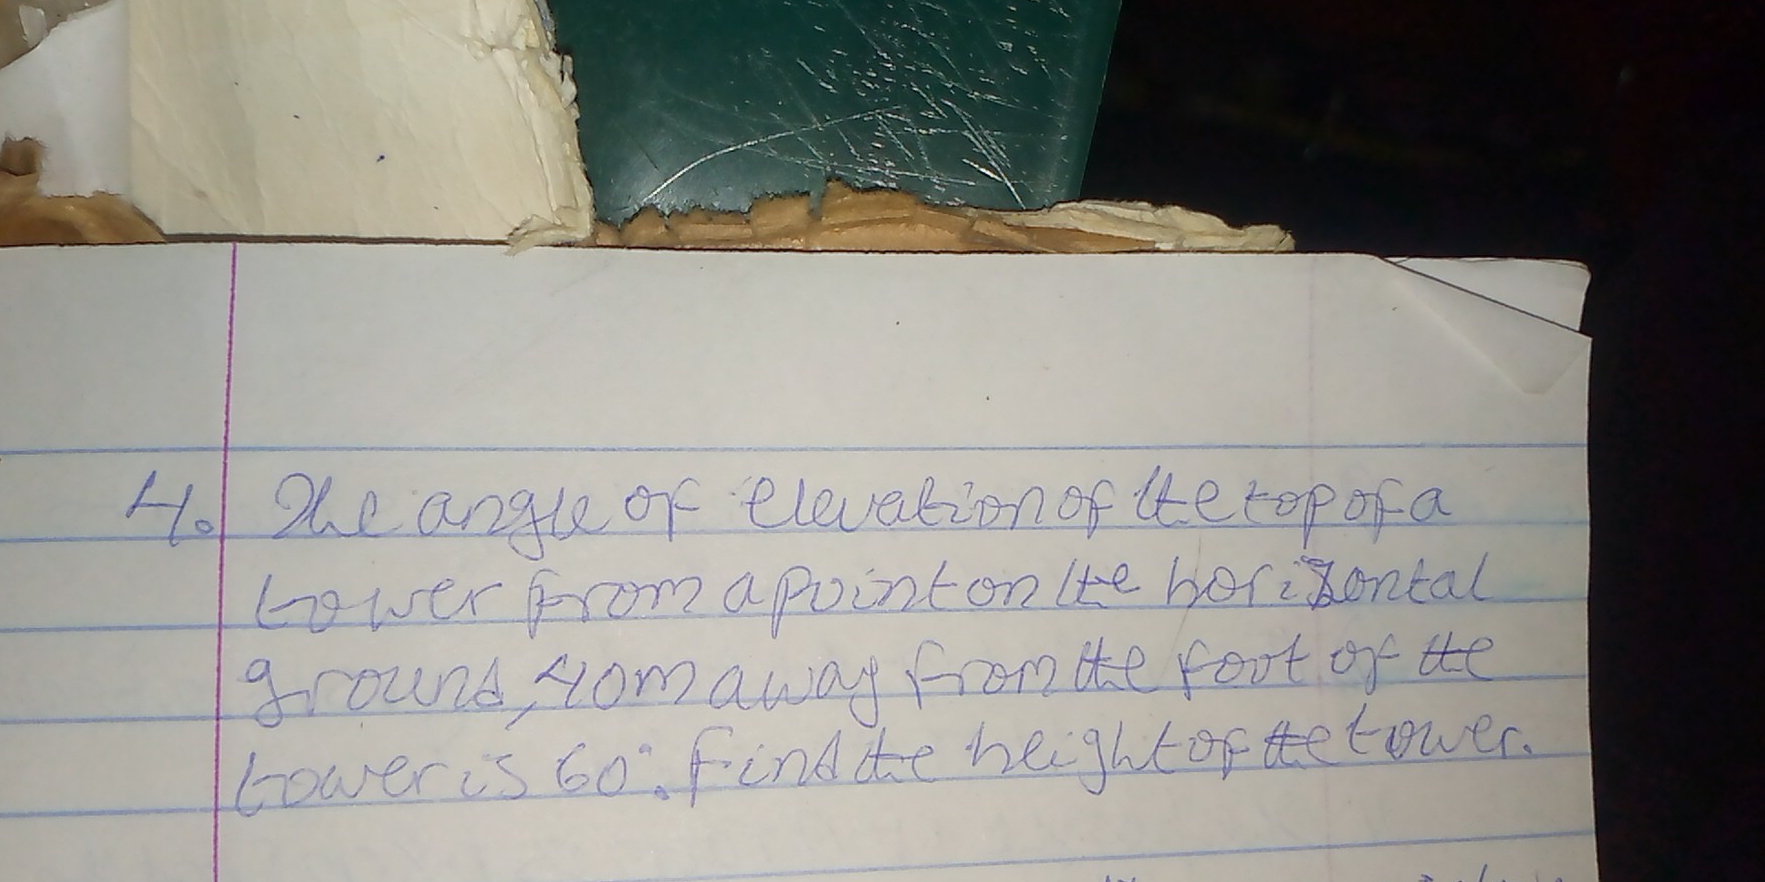 4. The angle of elevation of the top of a
tower from a point on the horizontal
ground, 40m away from the foot of the
tower is 60°. Find the height of the tower.